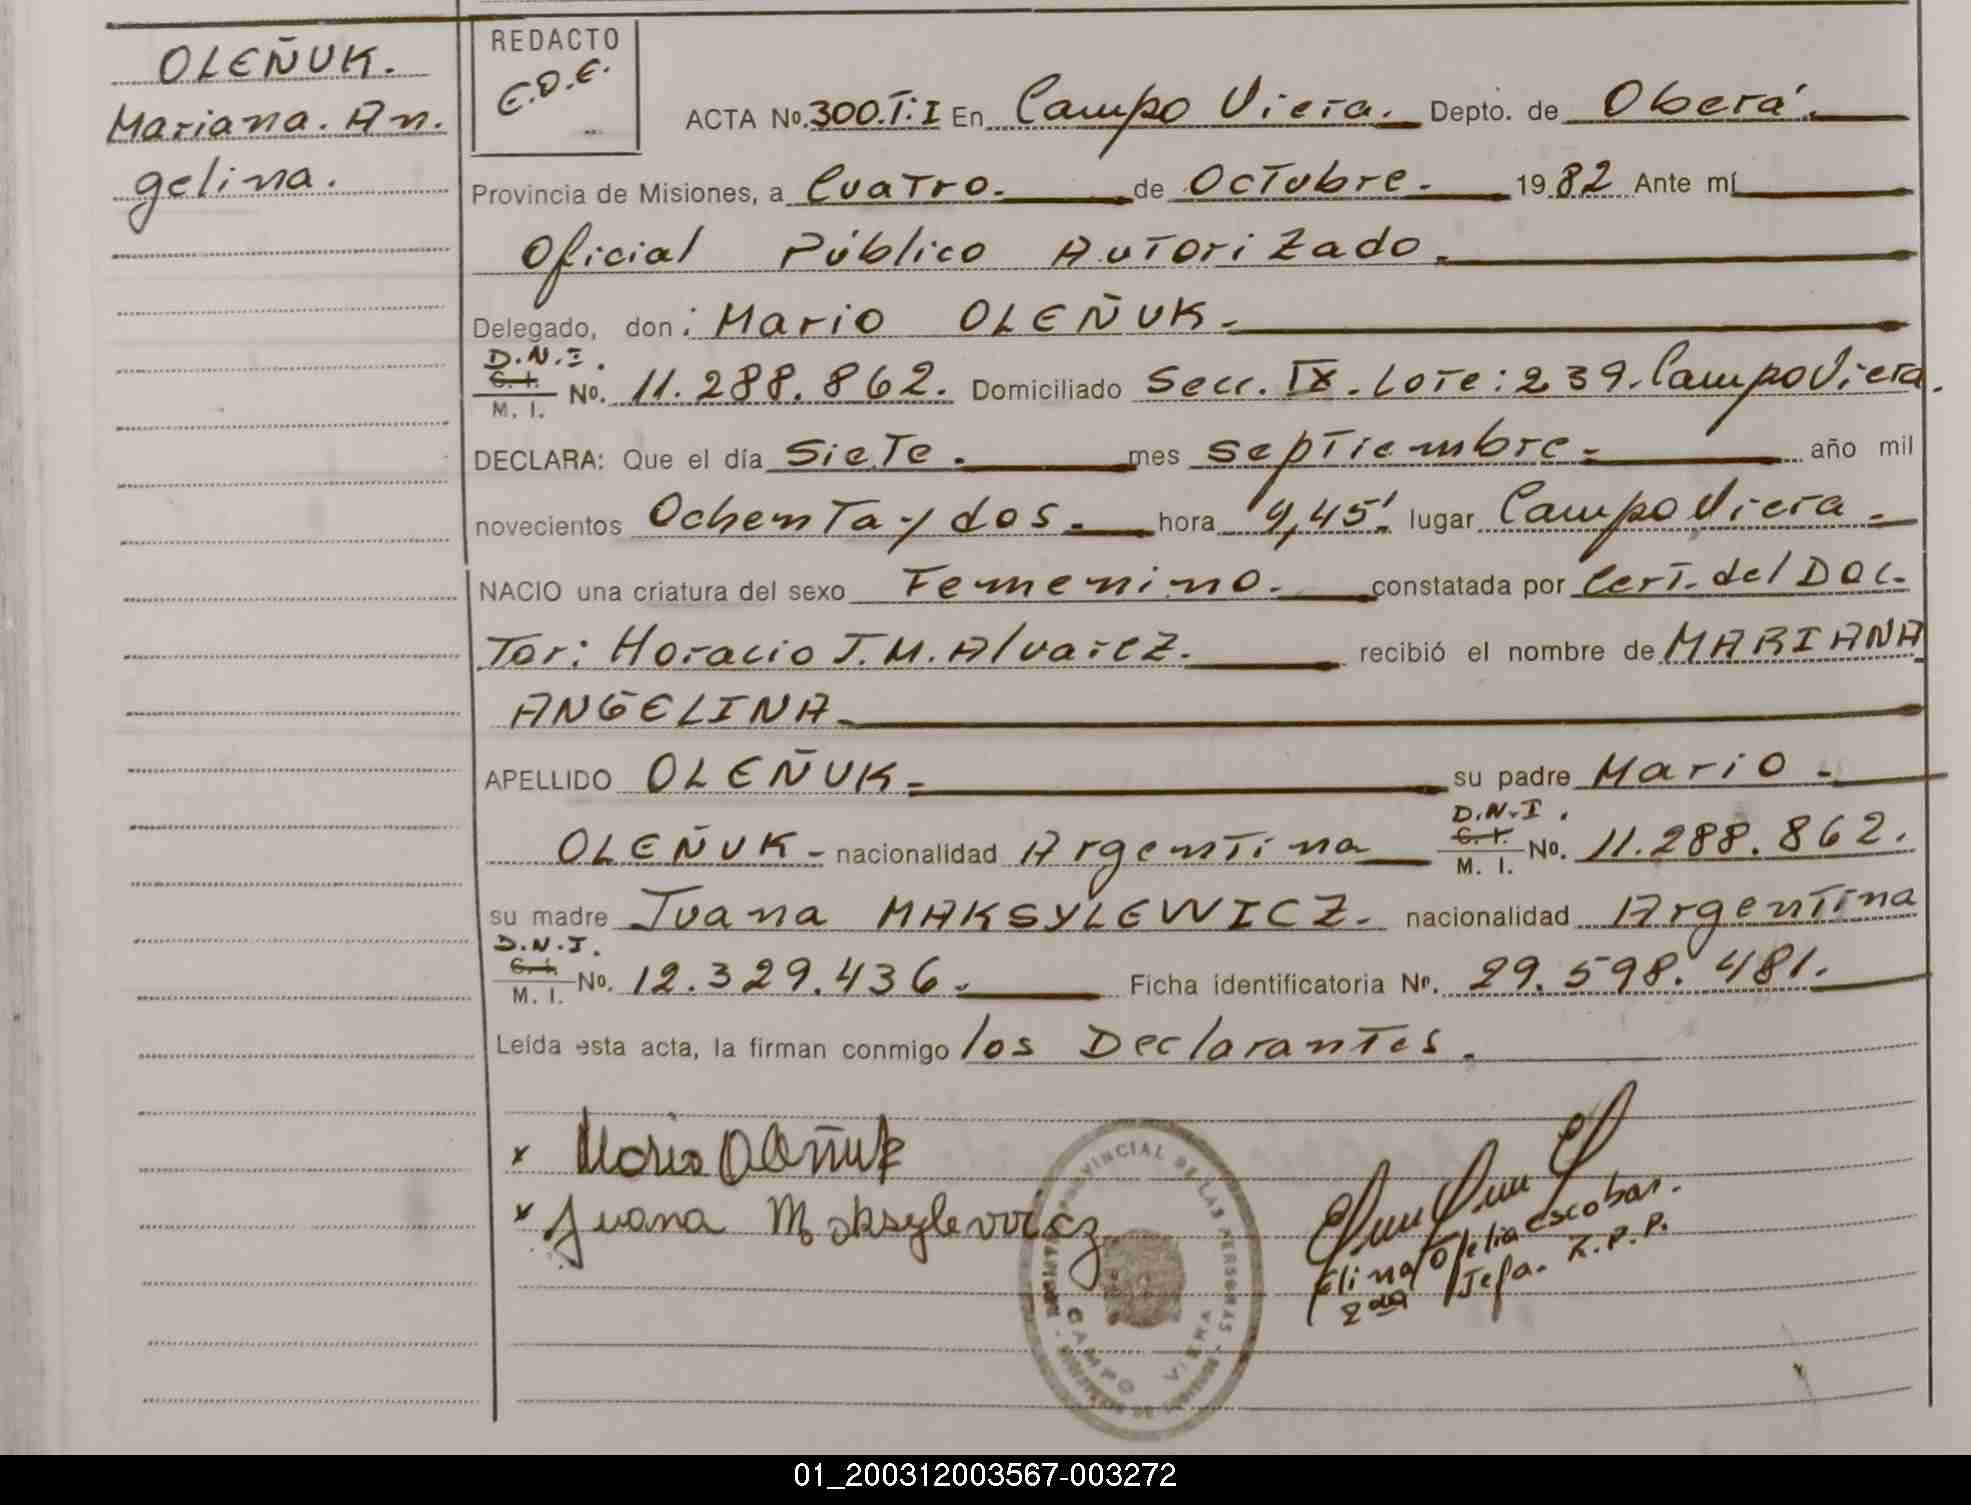 OLEÑUK.
Mariana. An.
gelina.
REDACTO
E.O.E.
ACTA No. 300.T:I En Campo Viera. Depto. de Oberá.
Provincia de Misiones, a Cuatro. de Octubre. 1982 Ante mí
Oficial Público Autorizado.
Delegado, don: Mario OLEÑUK.
D.N.I.
C. I.
M. I. No. 11.288.862. Domiciliado Secc. IX. Lote: 239. Campo Viera.
DECLARA: Que el día Siete. mes septiembre. año mil
novecientos Ochenta y dos. hora 9,45'. lugar Campo Viera.
NACIO una criatura del sexo Femenino. constatada por Cert. del DOC.
Tor: Horacio J.M. Alvarez. recibió el nombre de MARIANA
ANGELINA
APELLIDO OLEÑUK su padre Mario
D.N.I.
OLEÑUK nacionalidad Argentina C. I. No. 11.288.862.
M. I.
su madre Juana MAKSYLEWICZ. nacionalidad Argentina
D.N.I.
C. I. No. 12.329.436. Ficha identificatoria No. 29.598.481.
M. I.
Leída esta acta, la firman conmigo los Declarantes.
x Mario Oleñuk
x Juana Maksylewicz
PROVINCIAL DE LAS PERSONAS
CAMPO VIERA
Elina Ofelia Escobar.
2da Jefa. R.P.P.
01_200312003567-003272